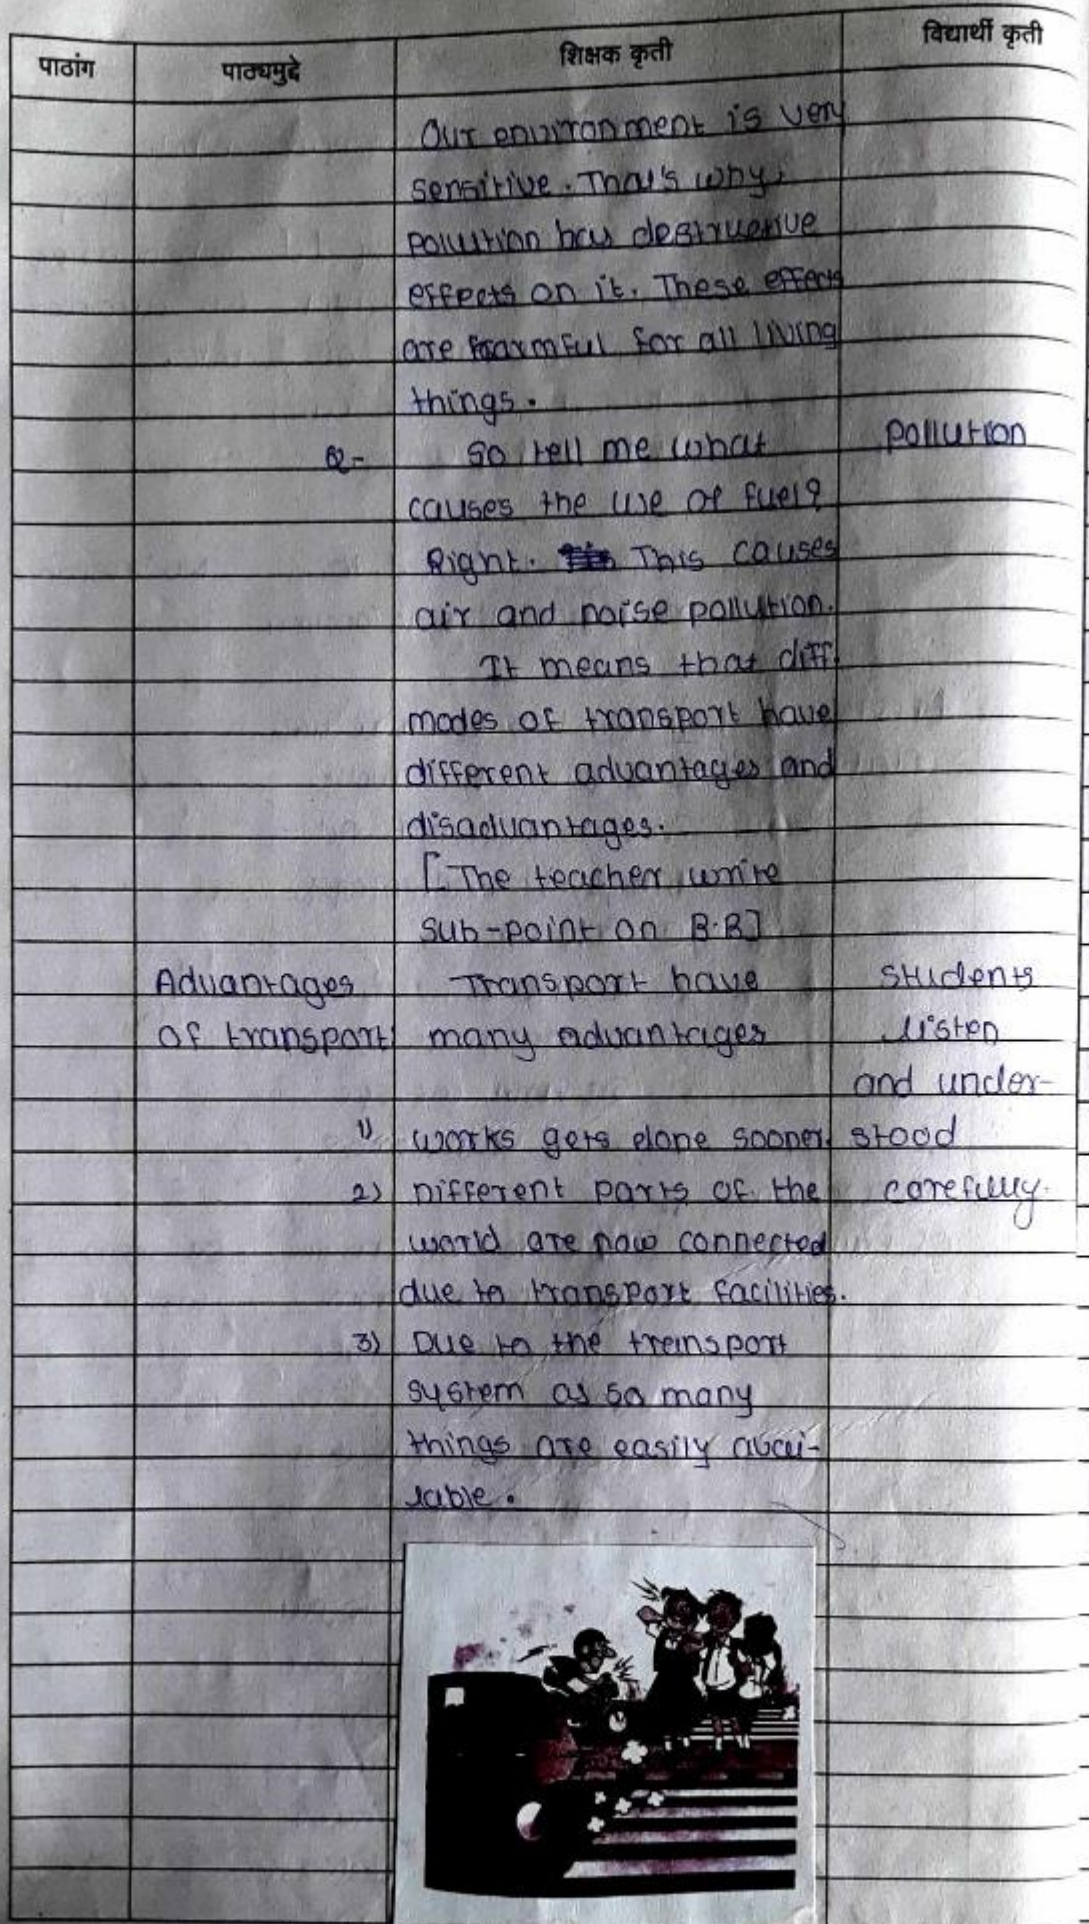 पाठांग पाठ्यमुद्दे शिक्षक कृती विद्यार्थी कृती
Our environment is very
sensitive. That's why,
pollution has destructive
effects on it. These effects
are harmful for all living
things.
Q- So tell me what pollution
causes the use of fuel?
Right. This causes
air and noise pollution.
It means that diff
modes of transport have
different advantages and
disadvantages.
[The teacher write
sub-point on B.B]
Advantages Transport have students
of transport many advantages listen
and under-
1) works gets done sooner. stood
2) Different parts of the carefully.
world are now connected
due to transport facilities.
3) Due to the transport
system as so many
things are easily avai-
lable.